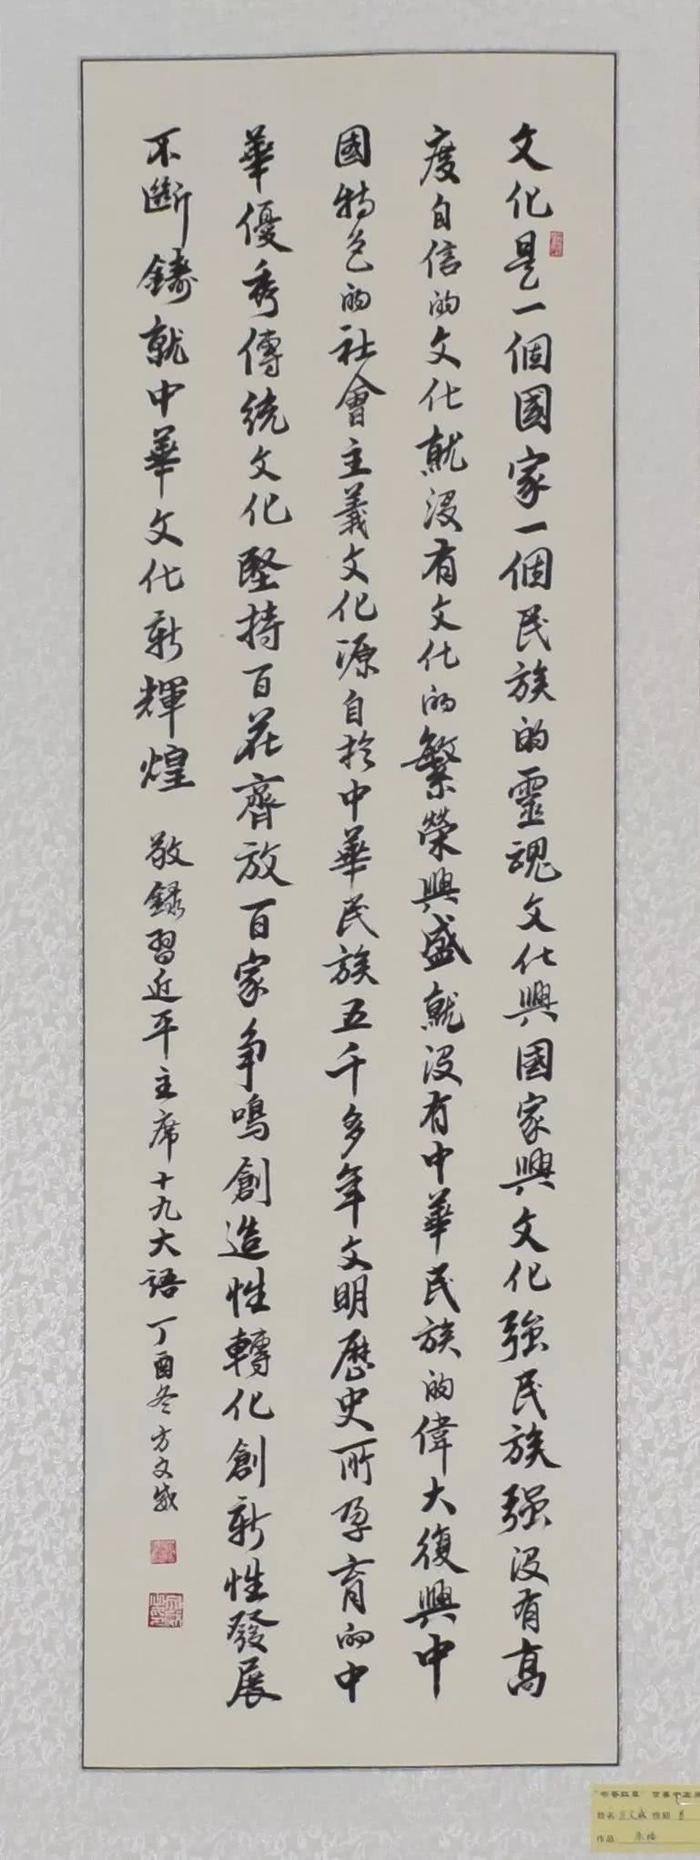 文化是一個國家一個民族的靈魂文化興國家興文化強民族强没有高
度自信的文化就没有文化的繁榮興盛就没有中華民族的偉大復興中
國特色的社會主義文化源自於中華民族五千多年文明歷史所孕育的中
華優秀傳統文化堅持百花齊放百家争鳴創造性轉化創新性發展
不斷鑄就中華文化新輝煌 敬録習近平主席十九大語 丁酉冬方文威
姓名 方文威 性别 男
作品